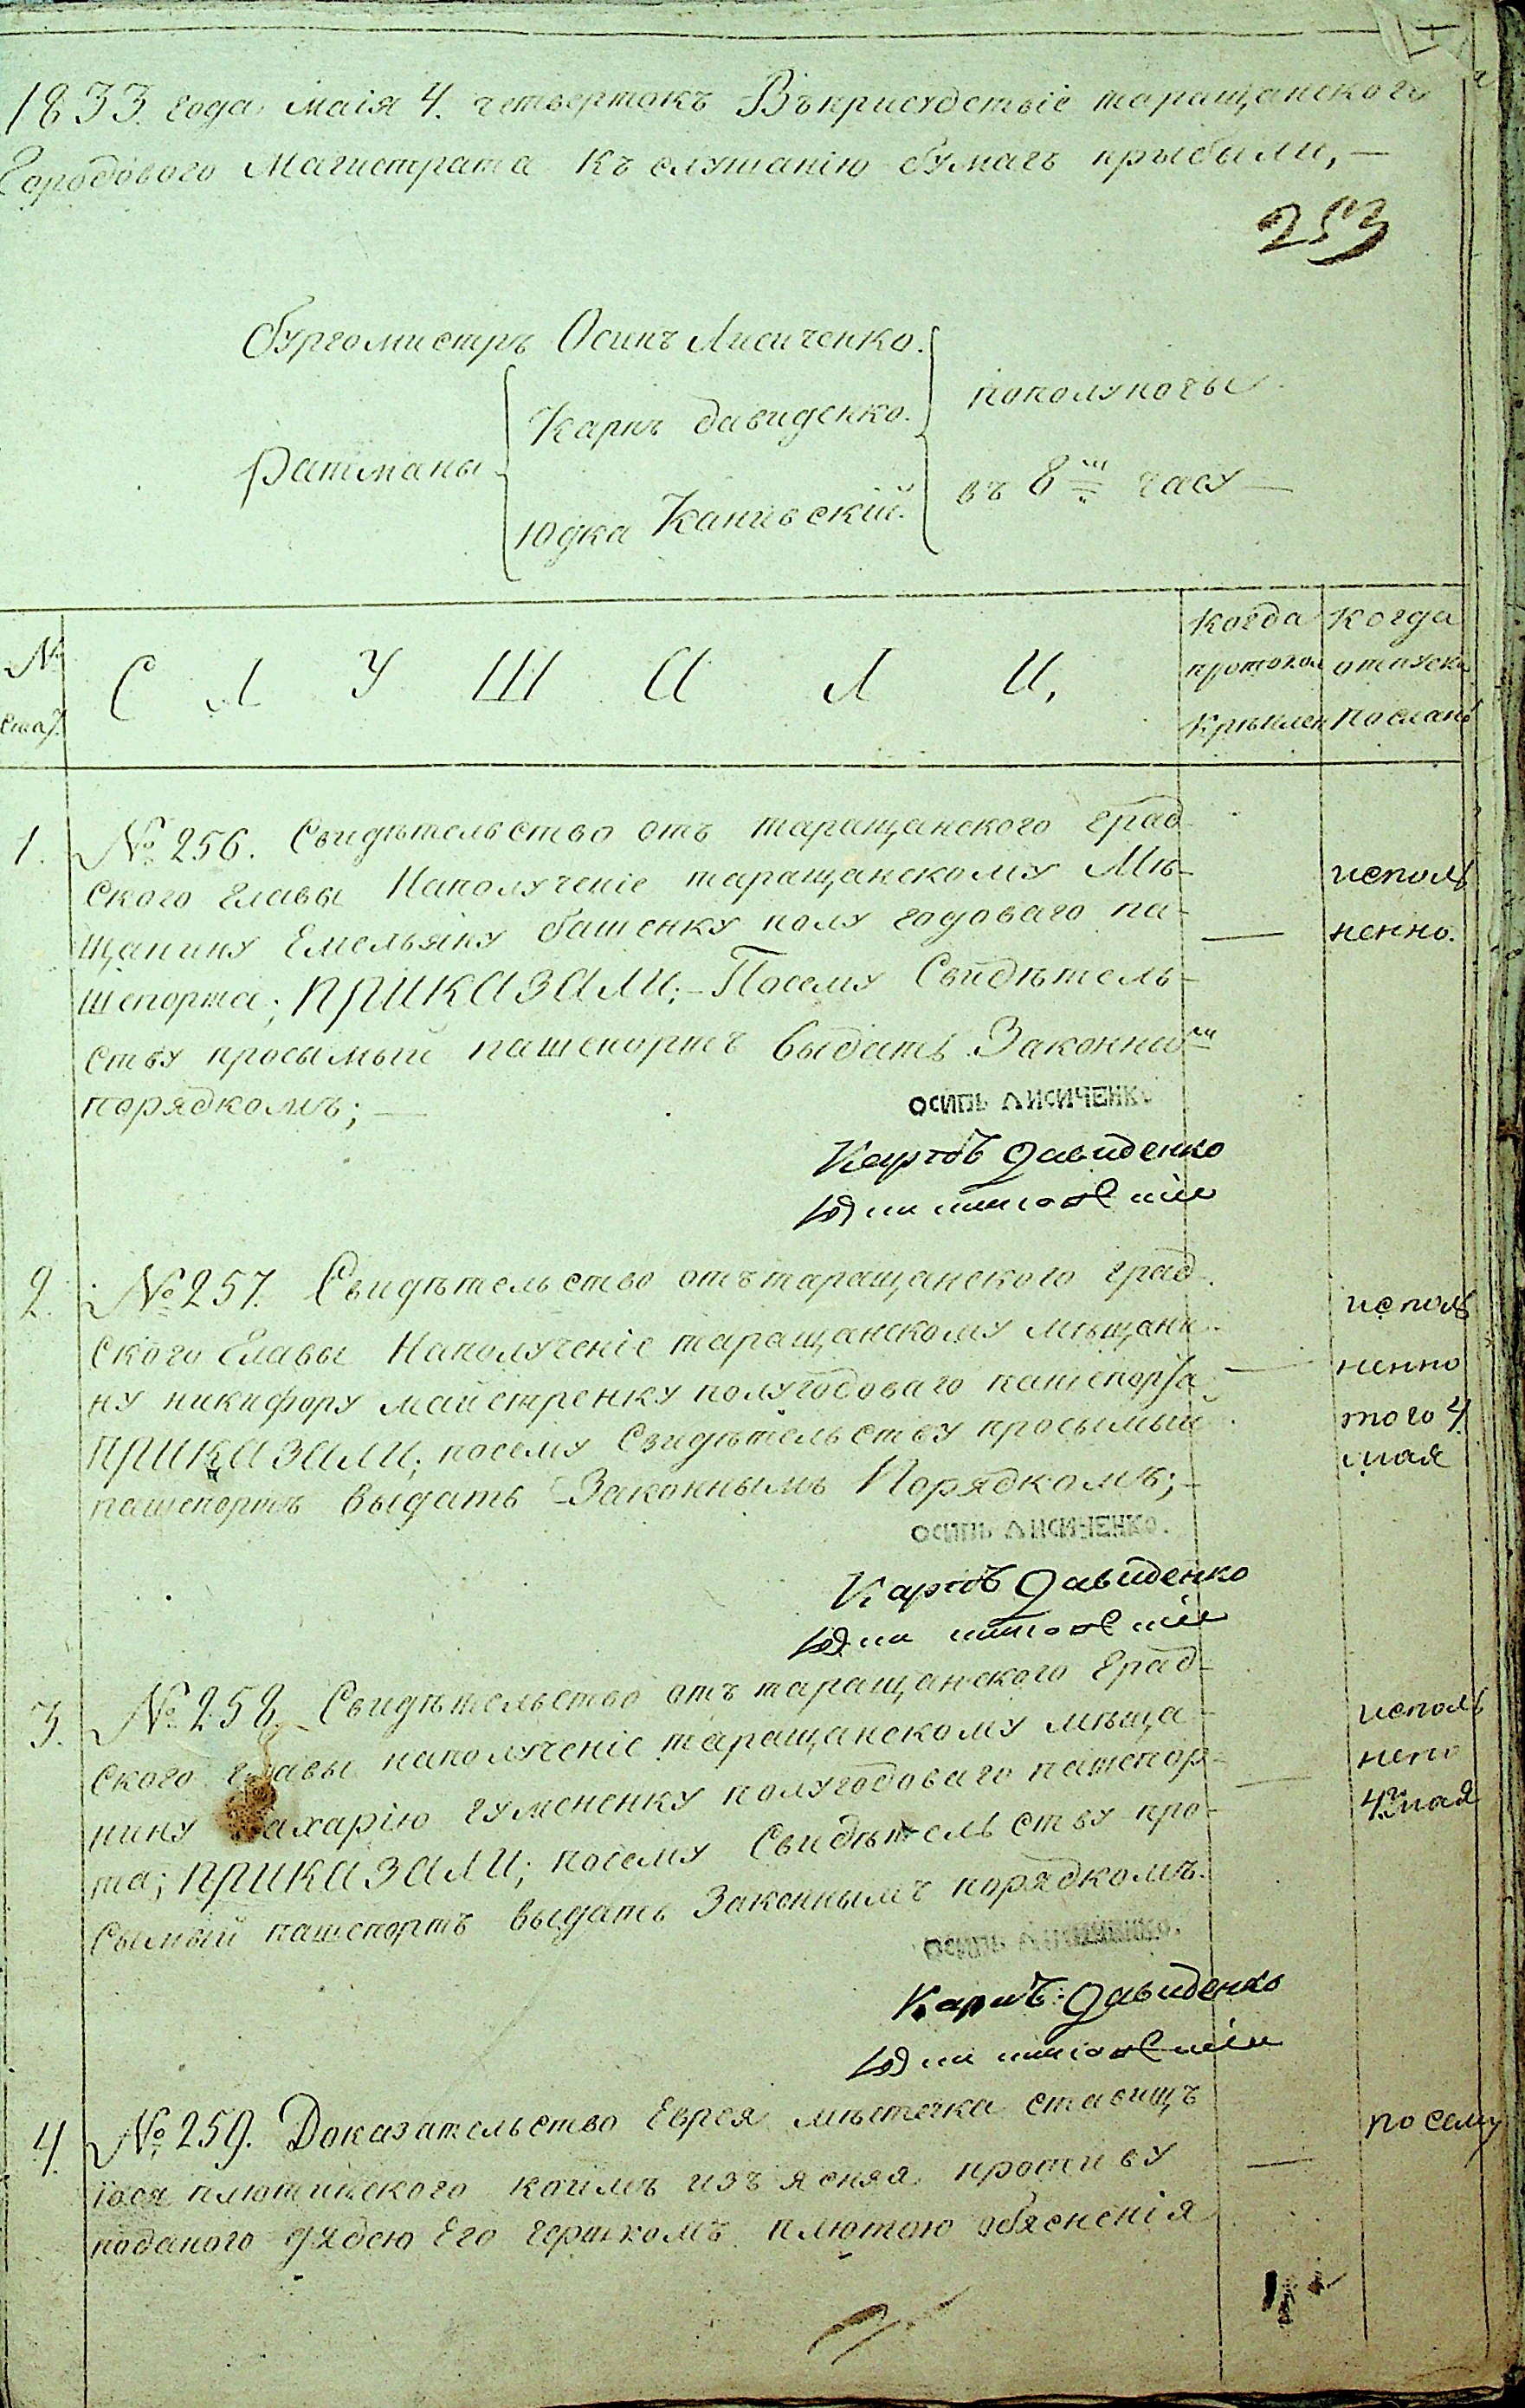 1833. года маія 4. четвертокъ Въ присудствіе таращанского
Городового Магистрата къ слушанію бумагъ прыбыли, —
253
бургомистръ Осипъ Лисиченко.
Ратманы
Карпъ давиденко.
Юдка Каневскій.
пополуночы
въ 8м часу —
№ стат.
СЛУШАЛИ,
когда протокол
когда отпуски посланы
1. № 256. Свидѣтельство отъ таращанского град-
ского главы Наполученіе таращанскому Мѣ-
щанину Емельяну башенку полу годоваго па-
шепорта; ПРИКАЗАЛИ; – Посему Свидѣтель-
ству просымый пашепортъ выдать Законным
порядкомъ; —
исполь
ненно.
ОСИПЬ ЛИСИЧЕНКО
Карпъ Давиденко
2. № 257. Свидѣтельство отъ таращанского град-
ского Главы Наполученіе таращанскому мѣщани-
ну никифору майстренку полугодоваго пашепорта
ПРИКАЗАЛИ; посему Свидѣтельству просымый
пашепортъ выдать Законнымъ Порядкомъ; –
исполь
ненно
того 4
мая
ОСИПЬ ЛИСИЧЕНКО.
Карпъ Давиденко
3. № 258. Свидѣтельство отъ таращанского Град-
ского главы наполученіе таращанскому мѣща-
нину Захарію гумененку полугодоваго пашепор-
та; ПРИКАЗАЛИ; посему Свидѣтельству про-
сымый пашепортъ выдать Законнымъ порядкомъ.
исполь
нено
4 мая
ОСИПЬ ЛИСИЧЕНКО.
Карпъ Давиденко
4. № 259. Доказательство Еврея мѣстечка ставищъ
Іося плютинского коимъ изъясняя противу
поданого дядею Его гершкомъ плютою обясненія
по сему